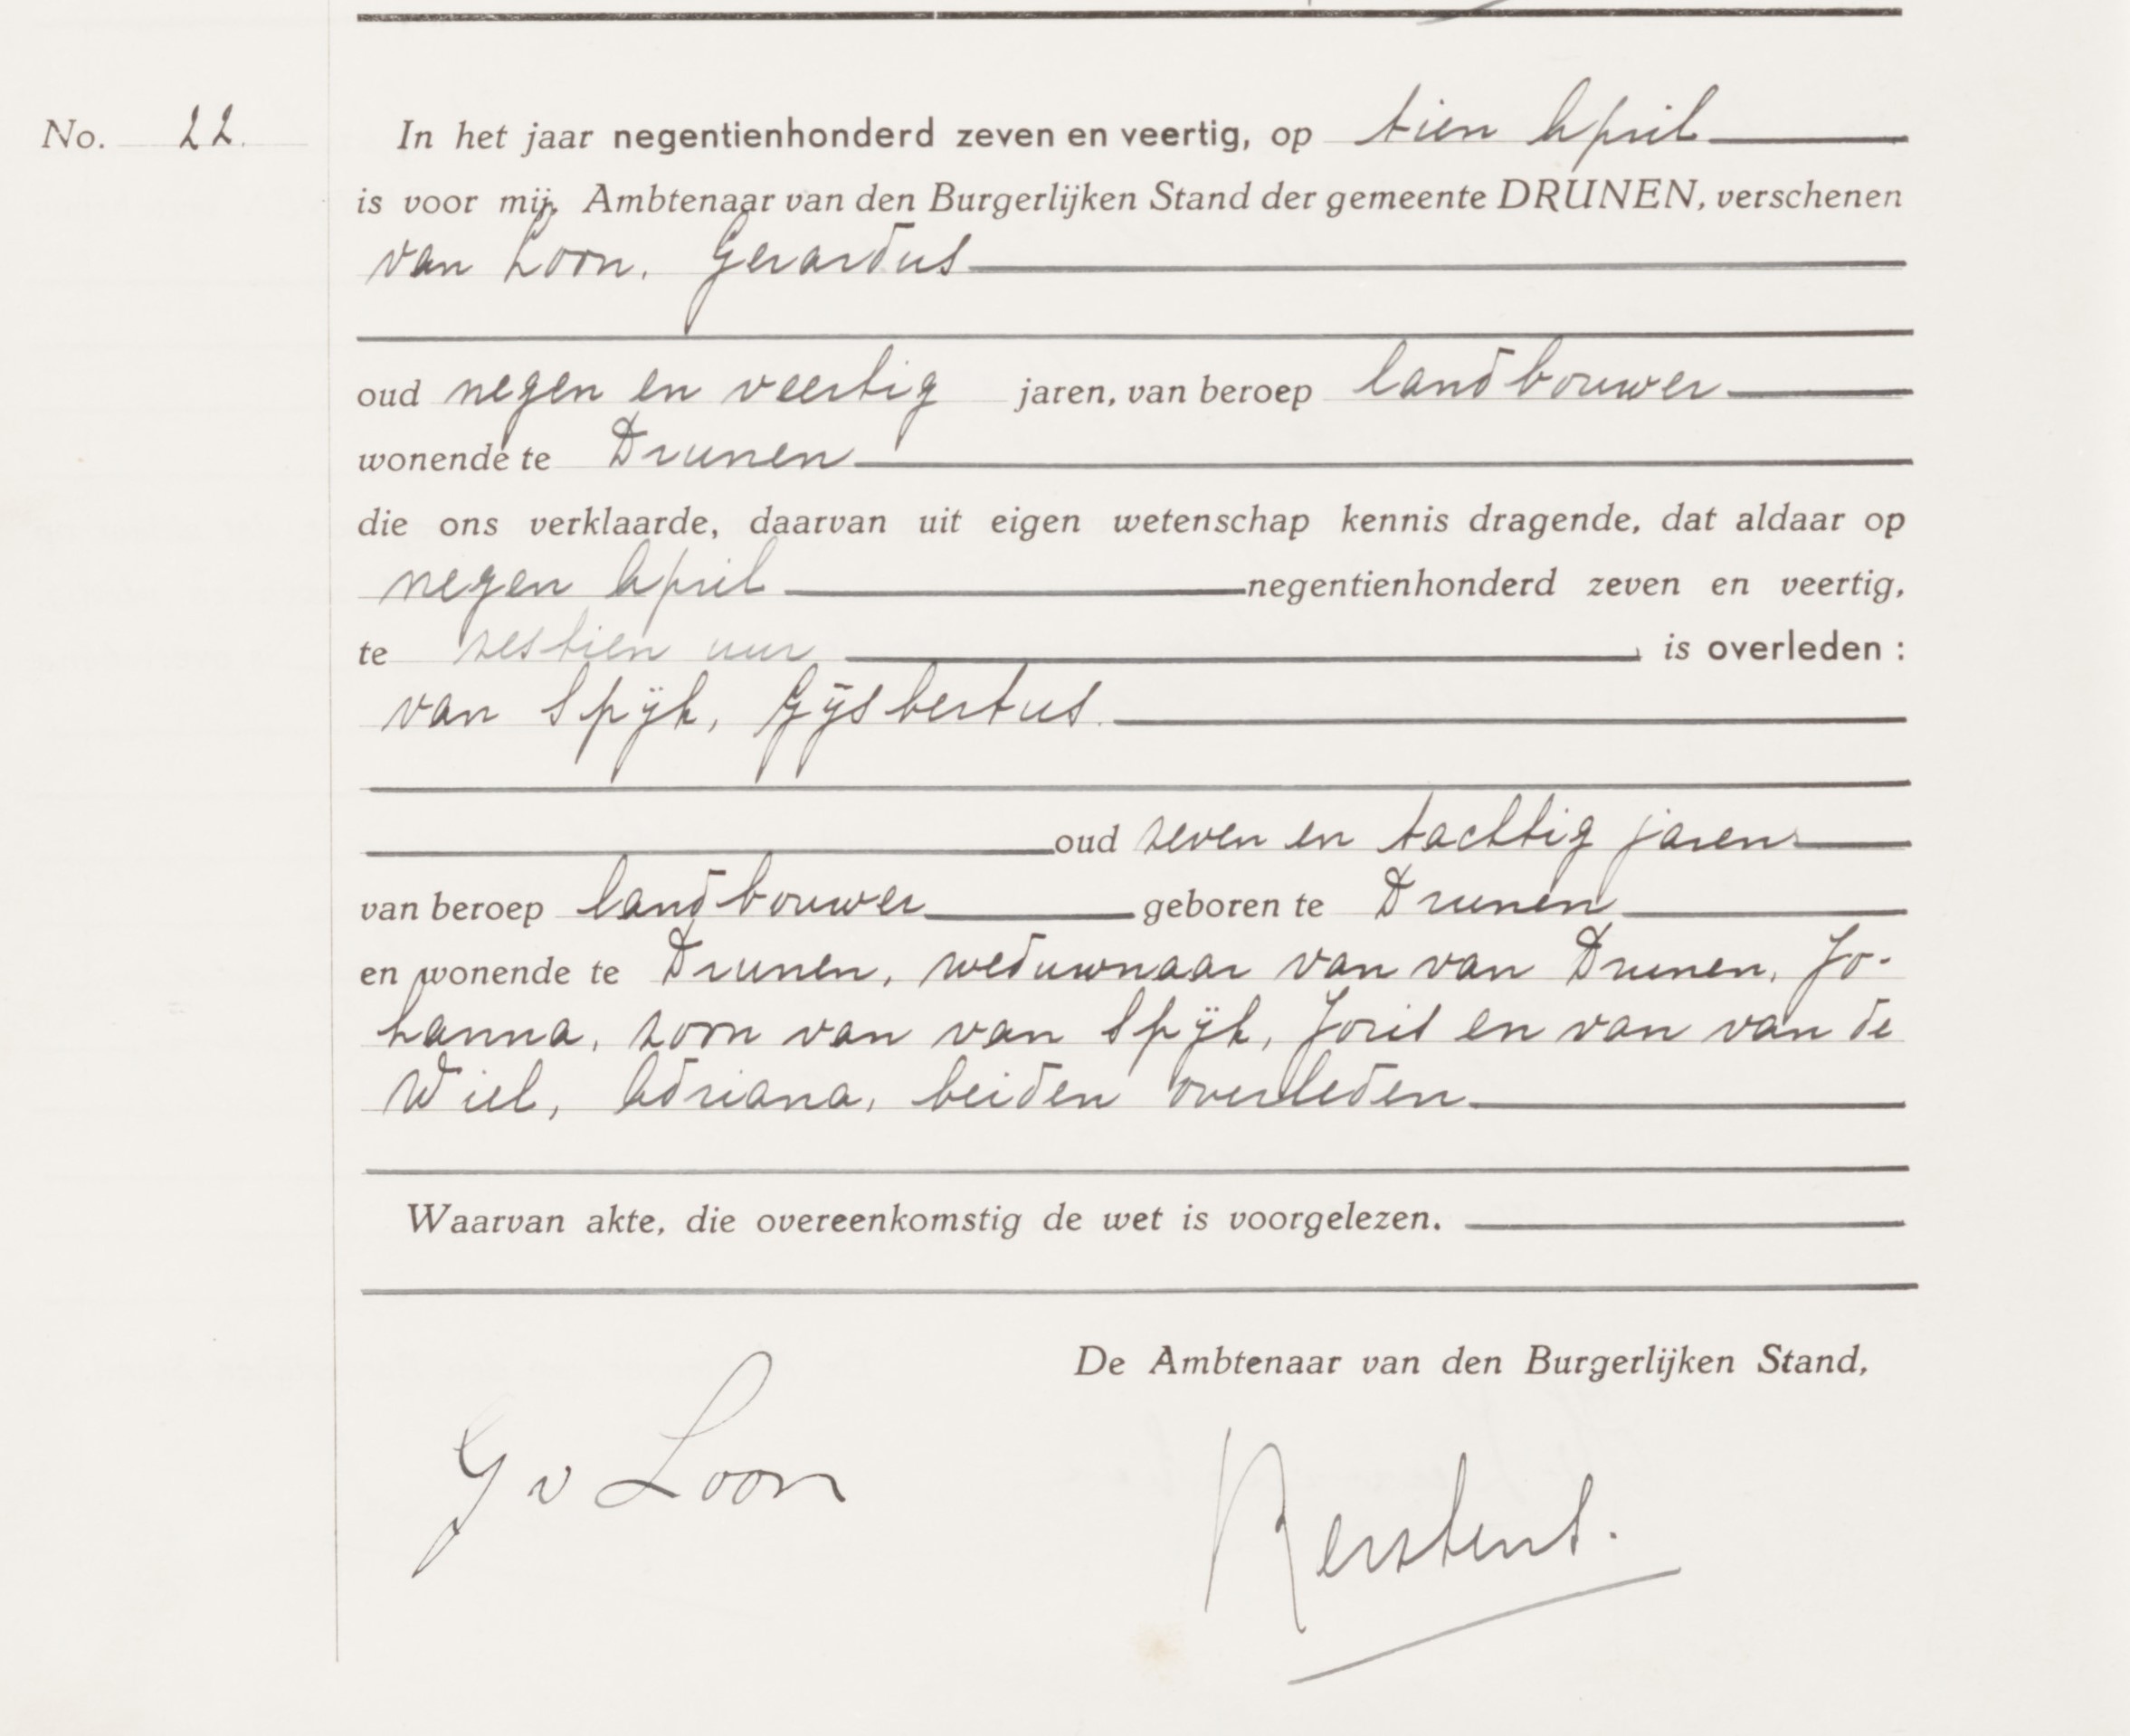 No. 22.
In het jaar negentienhonderd zeven en veertig, op tien April
is voor mij, Ambtenaar van den Burgerlijken Stand der gemeente DRUNEN, verschenen
van Loon, Gerardus
oud negen en veertig jaren, van beroep landbouwer
wonende te Drunen
die ons verklaarde, daarvan uit eigen wetenschap kennis dragende, dat aldaar op
negen April negentienhonderd zeven en veertig,
te zestien uur is overleden :
van Spijk, Gijsbertus.
oud zeven en tachtig jaren
van beroep landbouwer geboren te Drunen
en wonende te Drunen, weduwnaar van van Drunen, Jo-
hanna, zoon van van Spijk, Joris en van van de
Wiel, Adriana, beiden overleden
Waarvan akte, die overeenkomstig de wet is voorgelezen.
De Ambtenaar van den Burgerlijken Stand,
G v Loon